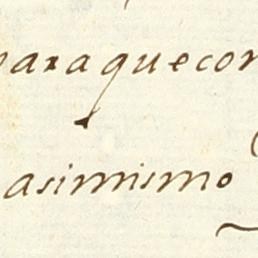 paraquecon
asimismo